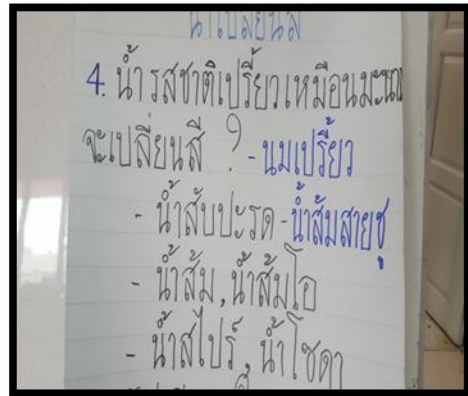 น้ำเปลี่ยนสี
4. น้ำรสชาติเปรี้ยวเหมือนมะนาว
จะเปลี่ยนสี ? - นมเปรี้ยว
- น้ำสับปะรด - น้ำส้มสายชู
- น้ำส้ม, น้ำส้มโอ
- น้ำสไปร์, น้ำโซดา